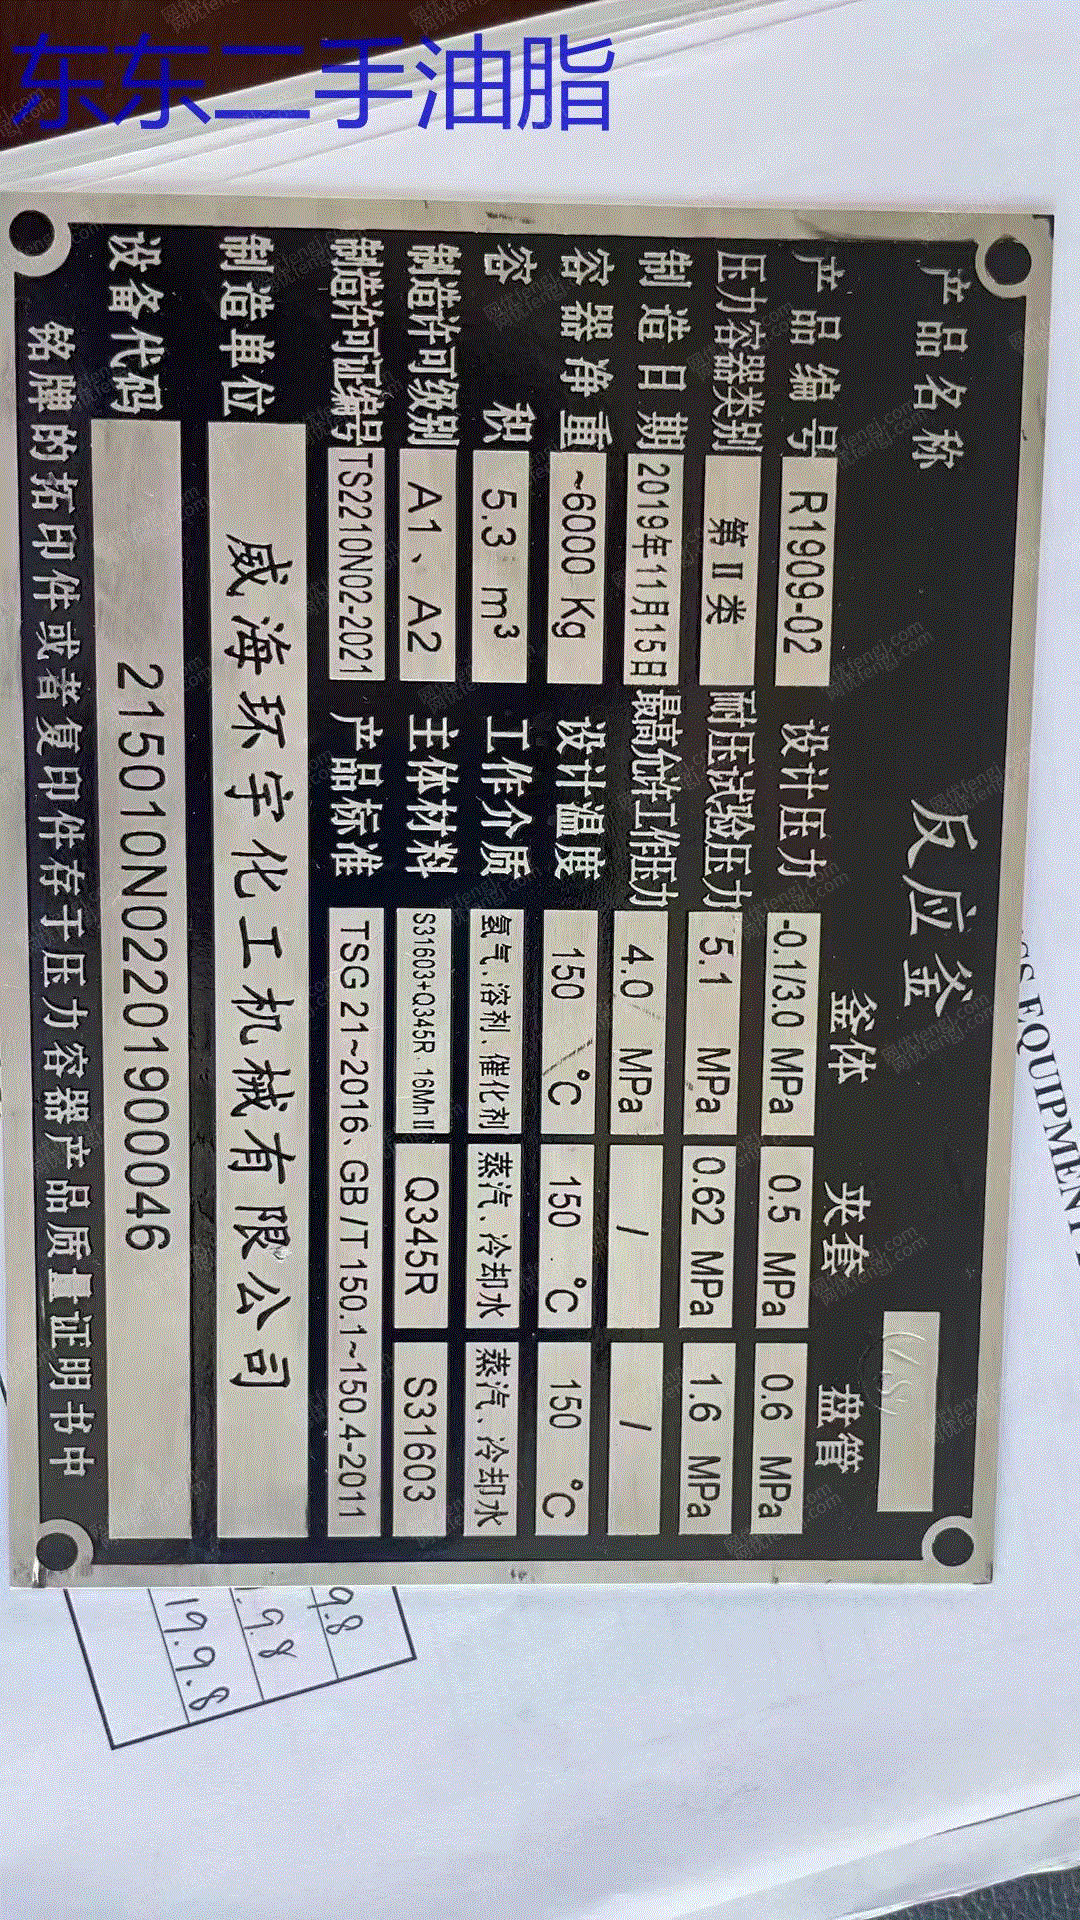 东东二手油脂
产品名称 反应釜
釜体 夹套 盘管
产品编号 R1909-02 设计压力 -0.1/3.0 MPa 0.5 MPa 0.6 MPa
压力容器类别 第Ⅱ类 耐压试验压力 5.1 MPa 0.62 MPa 1.6 MPa
制造日期 2019年11月15日 最高允许工作压力 4.0 MPa / /
容器净重 ~6000 Kg 设计温度 150 °C 150 °C 150 °C
容积 5.3 m³ 工作介质 氢气、溶剂、催化剂 蒸汽、冷却水 蒸汽、冷却水
制造许可级别 A1、A2 主体材料 S31603+Q345R 16MnⅡ Q345R S31603
制造许可证编号 TS2210N02-2021 产品标准 TSG 21~2016、GB/T 150.1~150.4-2011
制造单位 威海环宇化工机械有限公司
设备代码 215010N02201900046
铭牌的拓印件或者复印件存于压力容器产品质量证明书中
EQUIPMENT
9.8
.9.8
19.9.8
网优fengj.com